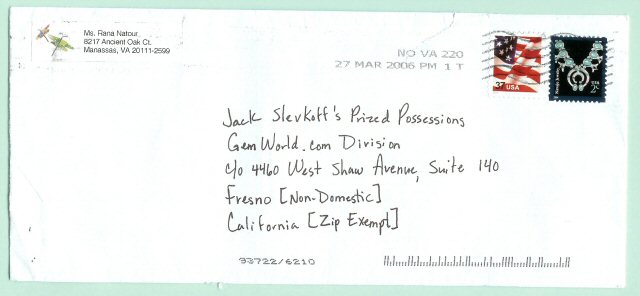 Ms. Rana Natour
8217 Ancient Oak Ct.
Manassas, VA 20111-2599
NO VA 220
27 MAR 2006 PM 1 T
37 USA
USA
2¢
Jack Slevkoff's Prized Possessions
GemWorld.com Division
c/o 4460 West Shaw Avenue, Suite 140
Fresno [Non-Domestic]
California [Zip Exempt]
93722/6210